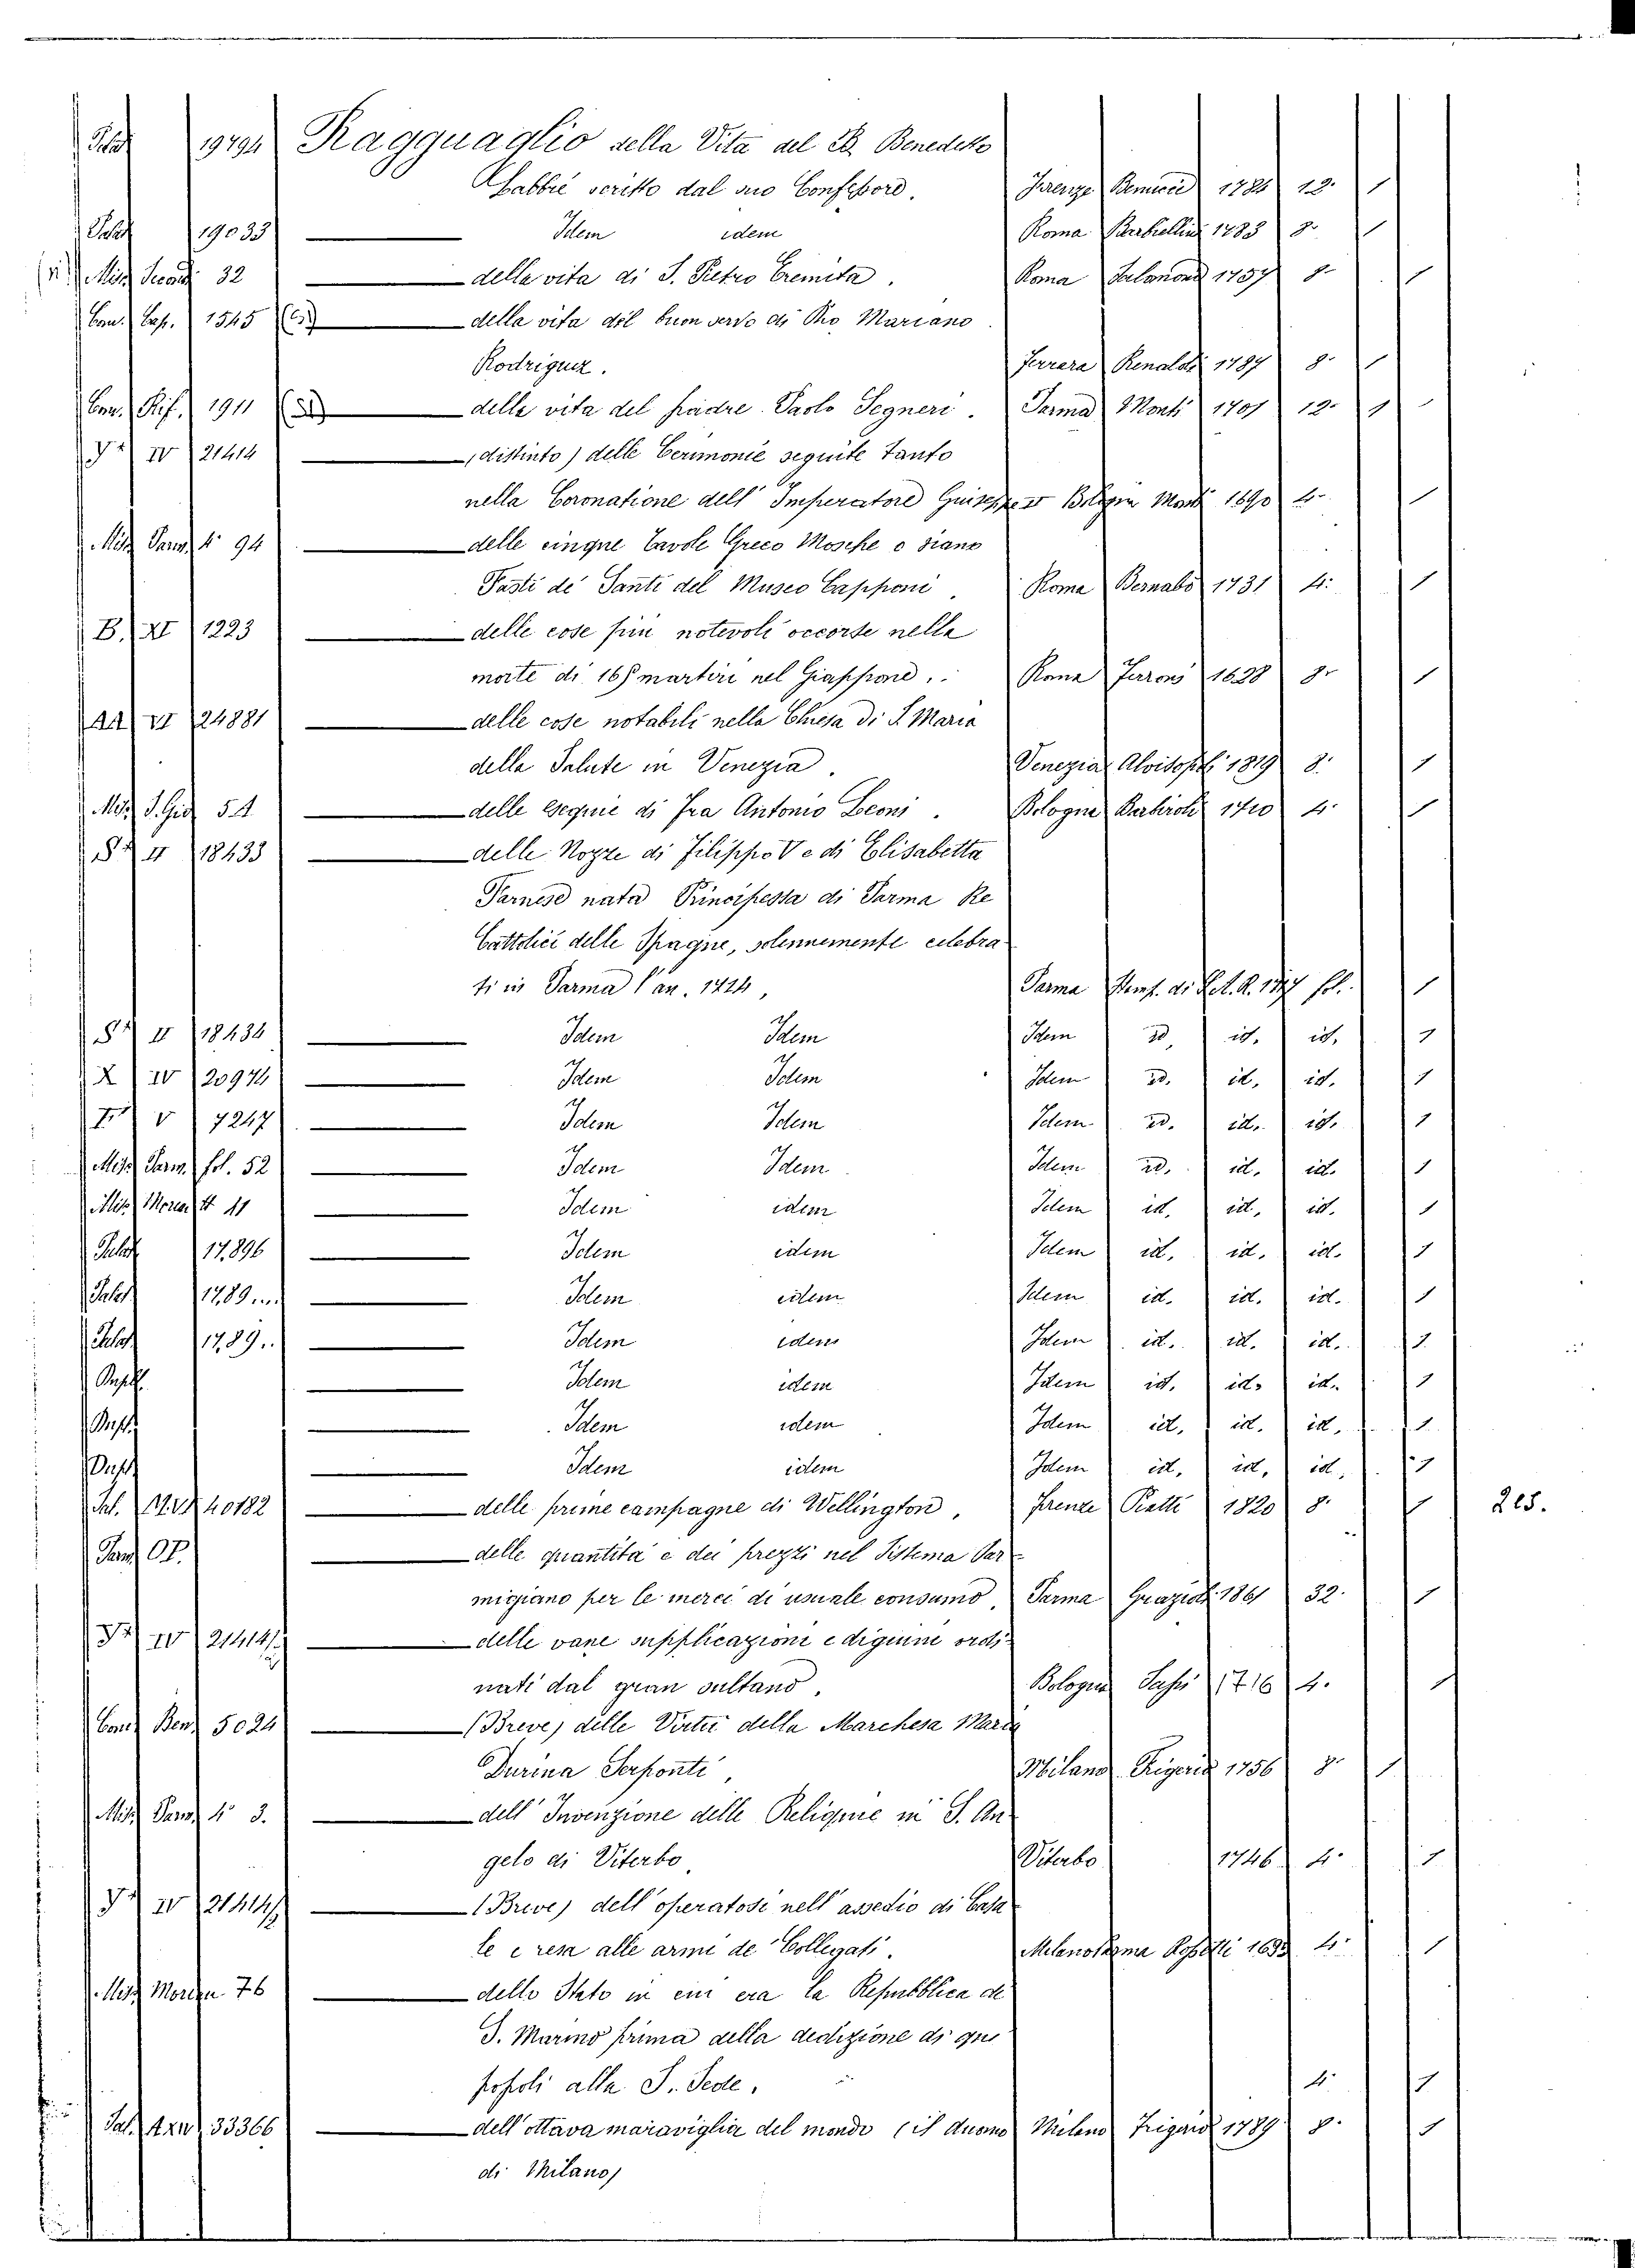 Palat 19794 Ragguaglio della Vita del B. Benedetto
Labbré scritto dal suo Confessore. Firenze 12. 1
Palat 19033 Idem idem Roma Barbiellini 1783 8. 1
Misc 32 della vita di S. Pietro Eremita. Roma Salamoni 1757 8. 1
Con. Cap. 1545 della vita del buon servo di Dio Mariano
Rodriguez. Ferrara Renaldi 1787 8. 1
Con. Rif. 1911 della vita del padre Paolo Segneri. Parma Monti 1701 12. 1
IV 21414 (distinto) delle Cerimonie seguite tanto
nella Coronatione dell' Imperatore Guiseppe Bologna 1690 4. 1
Misc Parm 4° 94 delle cinque Tavole Greco Mosche o siano
Fasti de' Santi del Museo Capponi, Roma Bernabò 1731 4. 1
B. XI 1223 delle cose più notevoli occorse nella
morte di 16 martiri nel Giappone. Roma 1628 8. 1
AA VI 24881 delle cose notabili nella Chiesa di S. Maria
della Salute in Venezia. Venezia Alvisopoli 1819 8. 1
Misc 54 delle esequie di Fra Antonio Leoni. Bologna 1710 4. 1
II 18433 delle Nozze di Filippo V e di Elisabetta
Farnese nata Principessa di Parma Re
Cattolici delle Spagne, solennemente celebra
ti in Parma l'an. 1714, Parma Stamp. di S.A.R. 1717 fol. 1
II 18434 Idem Idem Idem id. id. id. 1
X IV 20974 Idem Idem Idem id. id. id. 1
V 7247 Idem Idem Idem id. id. id. 1
Misc Parm. fol. 52 Idem Idem Idem id. id. id. 1
Misc 11 Idem idem Idem id. id. id. 1
Palat 17.896 Idem idem Idem id. id. id. 1
Palat 17.89... Idem idem Idem id. id. id. 1
Palat 17.89.. Idem idem Idem id. id. id. 1
Dupl. Idem idem Idem id. id. id. 1
Dupl. Idem idem Idem id. id. id. 1
Dupl. Idem idem Idem id. id. id. 1
Sal. 40182 delle prime campagne di Wellington, Firenze Piatti 1820 8. 1 215.
Parm OP. delle quantità e dei prezzi nel Sistema Par
migiano per le merci di usuale consumo, Parma Grazioli 1861 32. 1
IV 21414 delle vane supplicazioni e digiuni ordi
nati dal gran sultano. Bologna Sassi 1716 4. 1
Con. Ben. 5024 (Breve) delle Virtù della Marchesa Maria
Durina Serponti, Milano Frigerio 1756 8. 1
Misc Parm 4° 3. dell' Invenzione delle Reliquie in S. An
gelo di Viterbo, Viterbo 1746 4. 1
IV 21414 (Breve) dell'operatosi nell'assedio di Casa
le e resa alle armi de' Collegati. Milano Parma Rossetti 4. 1
Misc 76 dello Stato in cui era la Repubblica di
S. Marino prima della dedizione di que'
popoli alla S. Sede. 4. 1
Sal. 33366 dell'ottava maraviglia del mondo (il duomo Milano Frigerio 1789 8. 1
di Milano)